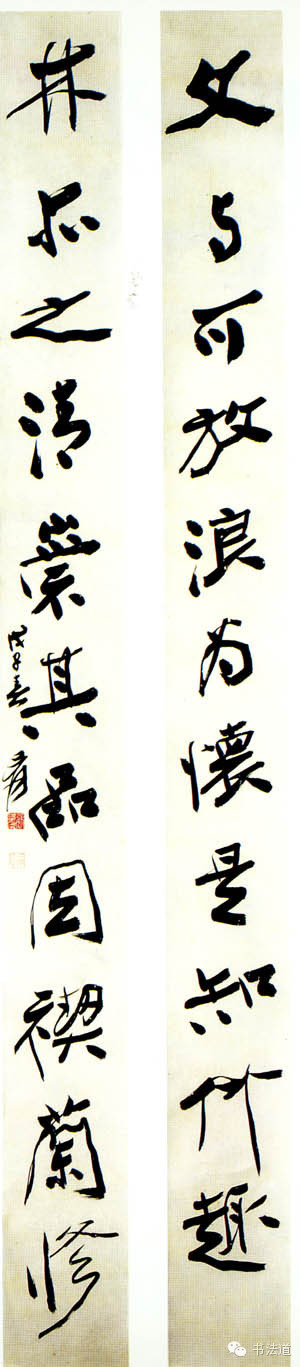 文与可放浪为懷是知竹趣
林亦之清崇其品因禊蘭修
戊子春 爰
书法道